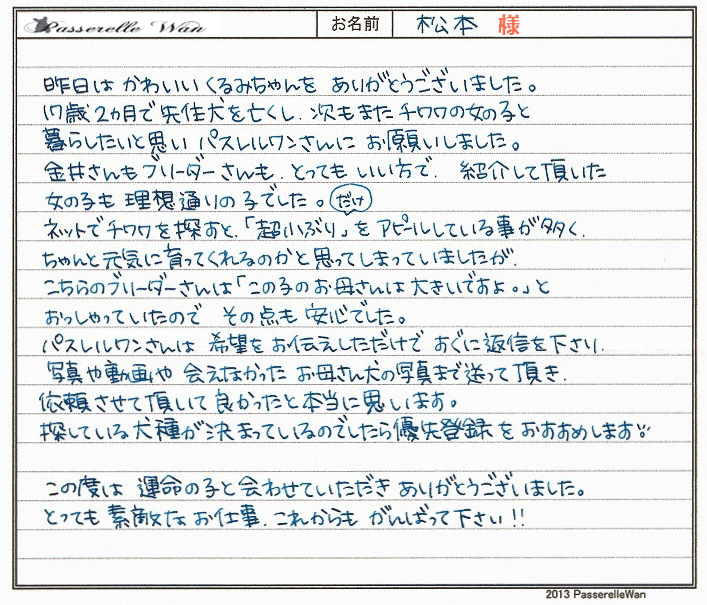 Passerelle Wan お名前 松本 様
昨日は かわいい くるみちゃんを ありがとうございました。
17歳2カ月で 先住犬を亡くし、次もまた チワワの女の子と
暮らしたいと思い パスレルワンさんに お願いしました。
金井さんも ブリーダーさんも、とっても いい方で、 紹介して頂いた
女の子も 理想通りの 子でした。
だけ
ネットで チワワを 探すと、「超小ぶり」を アピールしている事が多く、
ちゃんと元気に育ってくれるのかと思ってしまっていましたが、
こちらのブリーダーさんは「この子のお母さんは 大きいですよ。」と
おっしゃっていたので その点も 安心でした。
パスレルワンさんは 希望を お伝えしただけで すぐに返信を下さり、
写真や動画や 会えなかった お母さん犬の写真まで送って頂き、
依頼させて頂いて 良かったと本当に思います。
探している犬種が 決まっているのでしたら 優先登録を おすすめします
この度は 運命の子と会わせていただき ありがとうございました。
とっても 素敵な お仕事、これからも がんばって下さい!!
2013 PasserelleWan